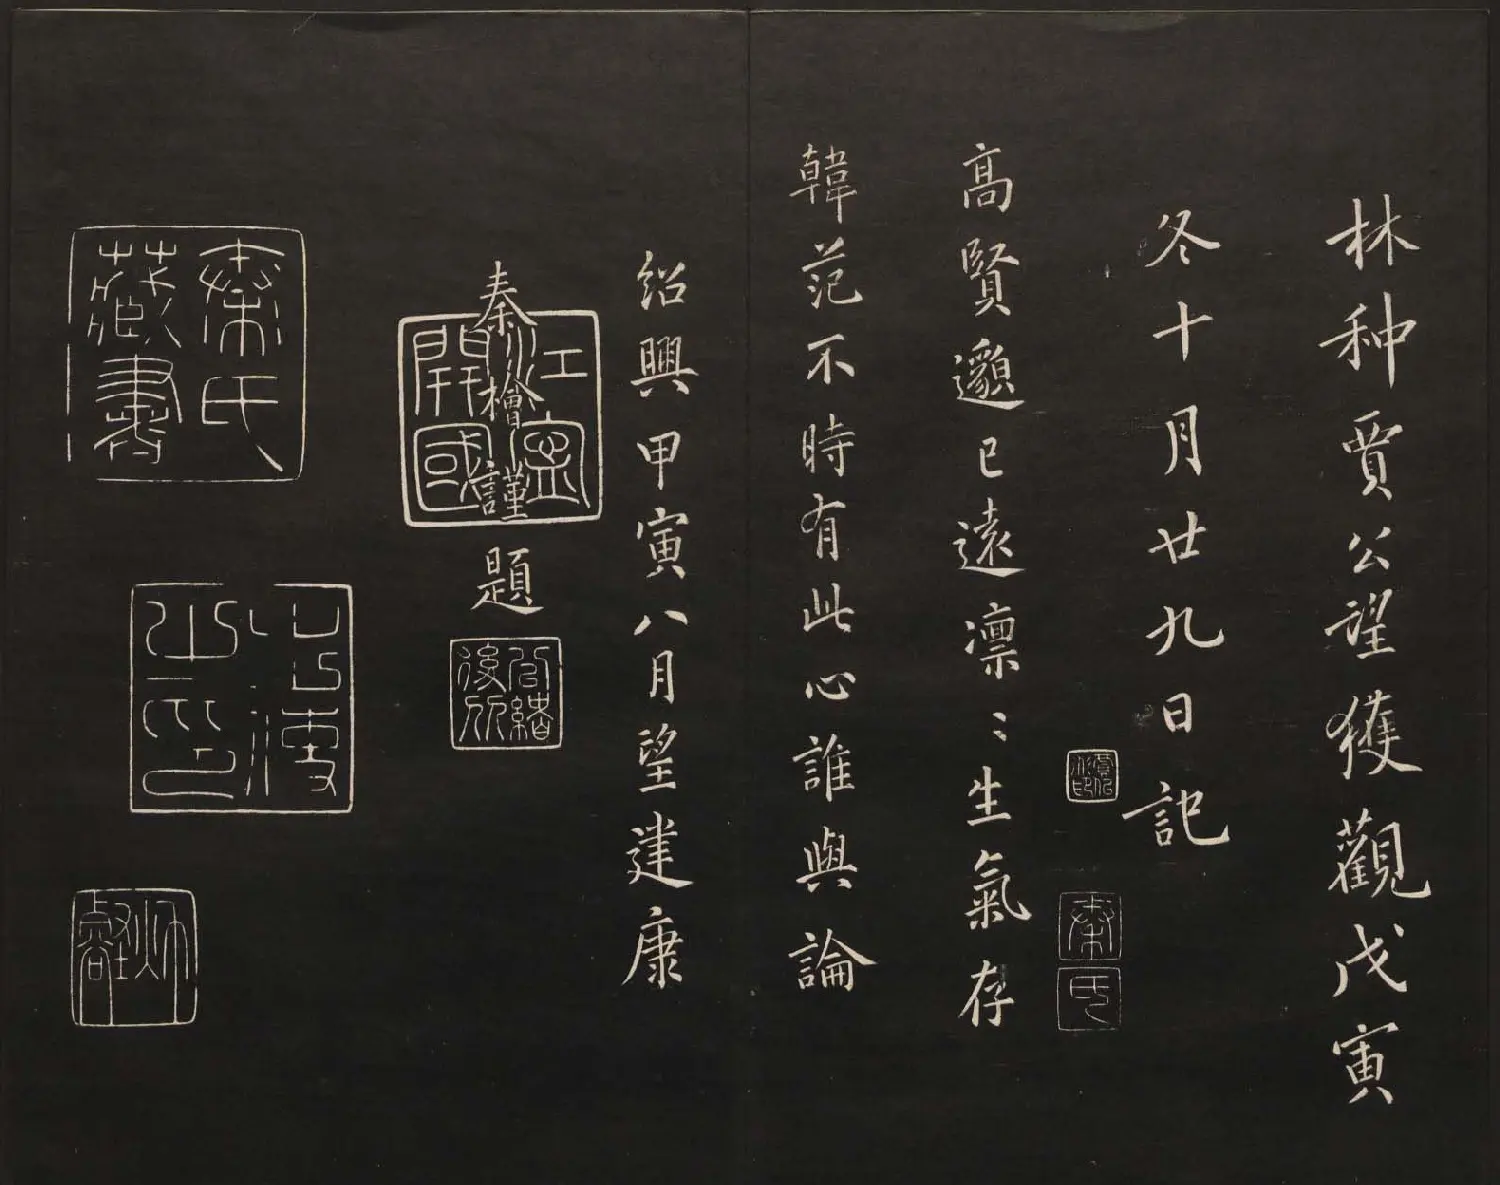 林种賈公望獲觀戊寅
冬十月廿九日記
秦氏
高賢邈已遠凛〻生氣存
韓范不時有此心誰與論
紹興甲寅八月望建康
秦檜謹題
江寧開國
秦氏藏書